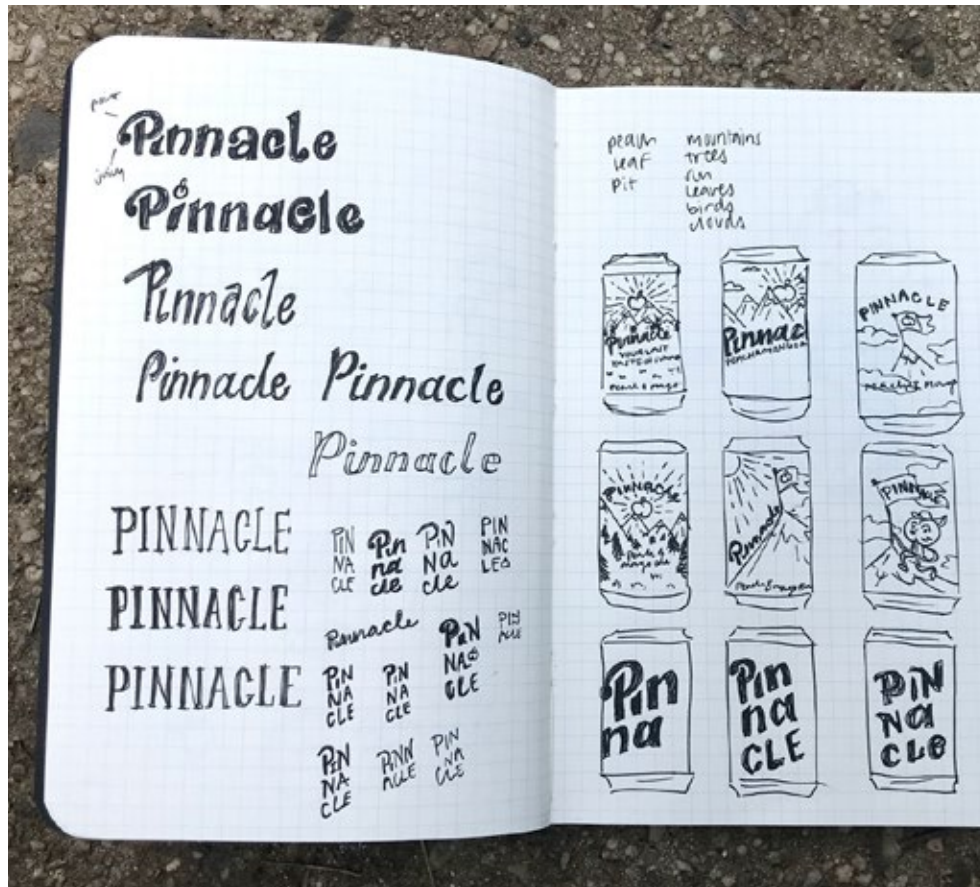 Pinnacle
Pinnacle
Pinnacle
Pinnacle Pinnacle
Pinnacle
PINNACLE
PINNACLE
PINNACLE
PiN
NA
CLE
Pin
na
cle
PiN
Na
cle
PIN
NAC
LE
Pinnacle
PiN
NAC
CLE
PIN
PiN
NA
CLE
PiN
NA
CLE
PiN
NA
CLE
PiNN
ACLE
PiN
NA
CLE
peach
leaf
pit
mountains
trees
sun
leaves
birds
clouds
Pinnacle
Pinnac
PINNACLE
PINNACLE
Pinnacle
PINNACLE
Pin
na
Pin
na
CLE
PiN
Na
cle